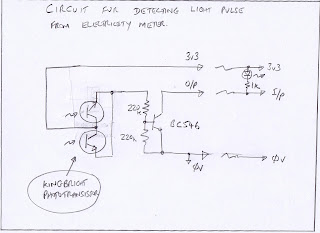 CIRCUIT FOR DETECTING LIGHT PULSE
FROM ELECTRICITY METER.
3v3
3v3
O/P
I/P
1K
220k
BC546
220k
0V
0V
KINGBRIGHT
PHOTOTRANSISTOR